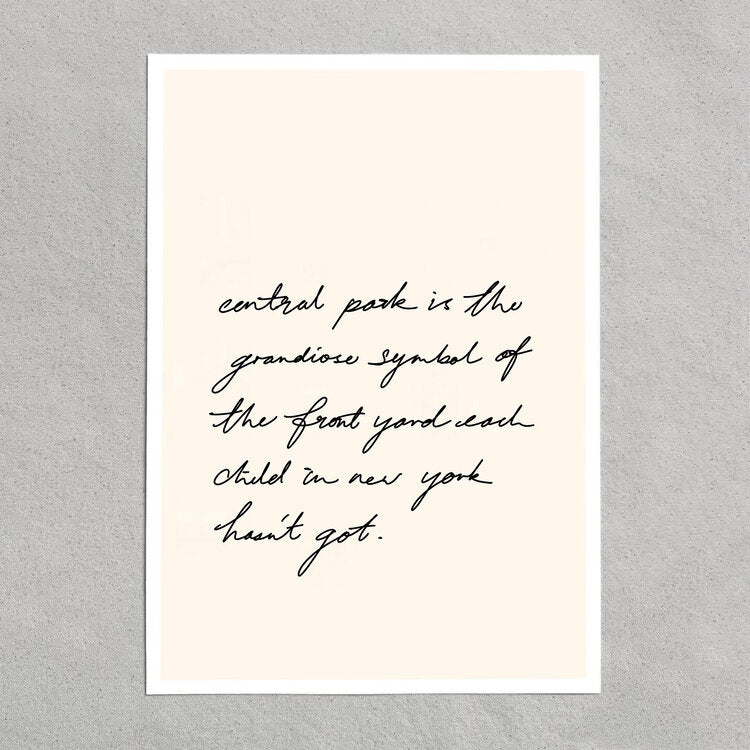 central park is the
grandiose symbol of
the front yard each
child in new york
hasn't got.